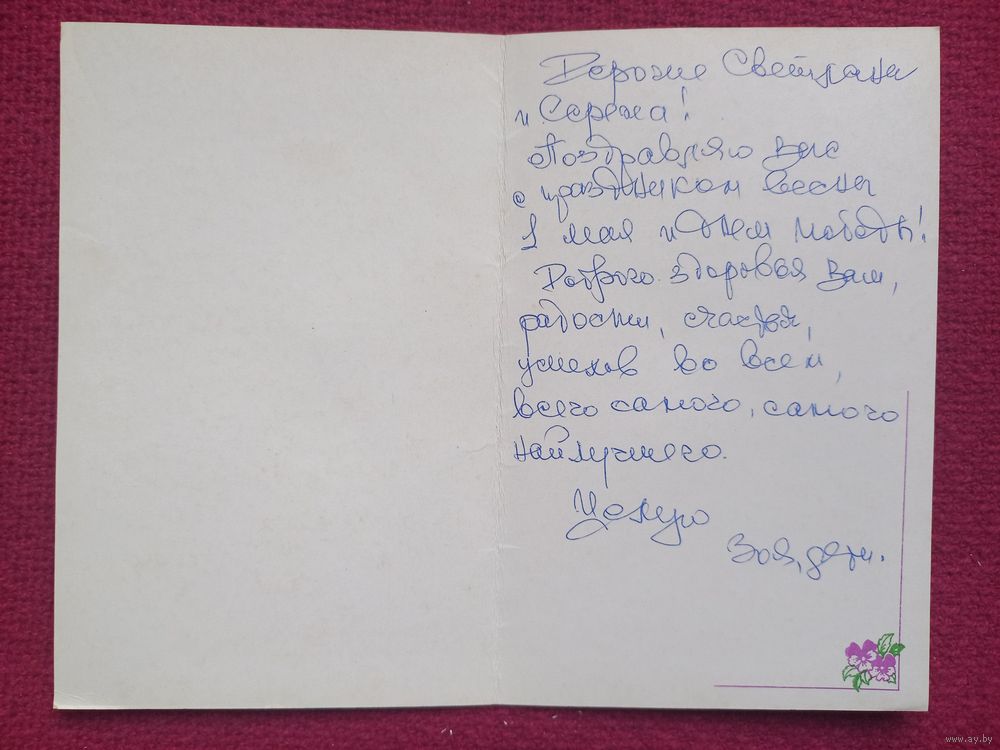 Дорогие Светлана
и Сережа!
Поздравляю Вас
с праздником весны
1 мая и Днем Победы!
Доброго здоровья Вам,
радости, счастья,
успехов во всем,
всего самого, самого
наилучшего.
Целую
Зоя, дети.
www.ay.by